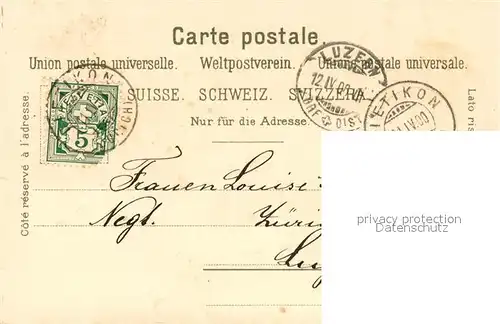 Carte postale.
Union postale universelle. Weltpostverein. Unione postale universale.
SUISSE. SCHWEIZ. SVIZZERA.
Nur für die Adresse.
Côté réservé à l'adresse.
Lato ris
LUZERN
12.IV.00
ETIKON
IV.00
IKON
HELVETIA
5
Frauen Louise
Negt. Züri
Lu
privacy protection
Datenschutz